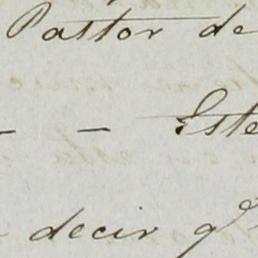 Pastor de
— — Este
decir q.e